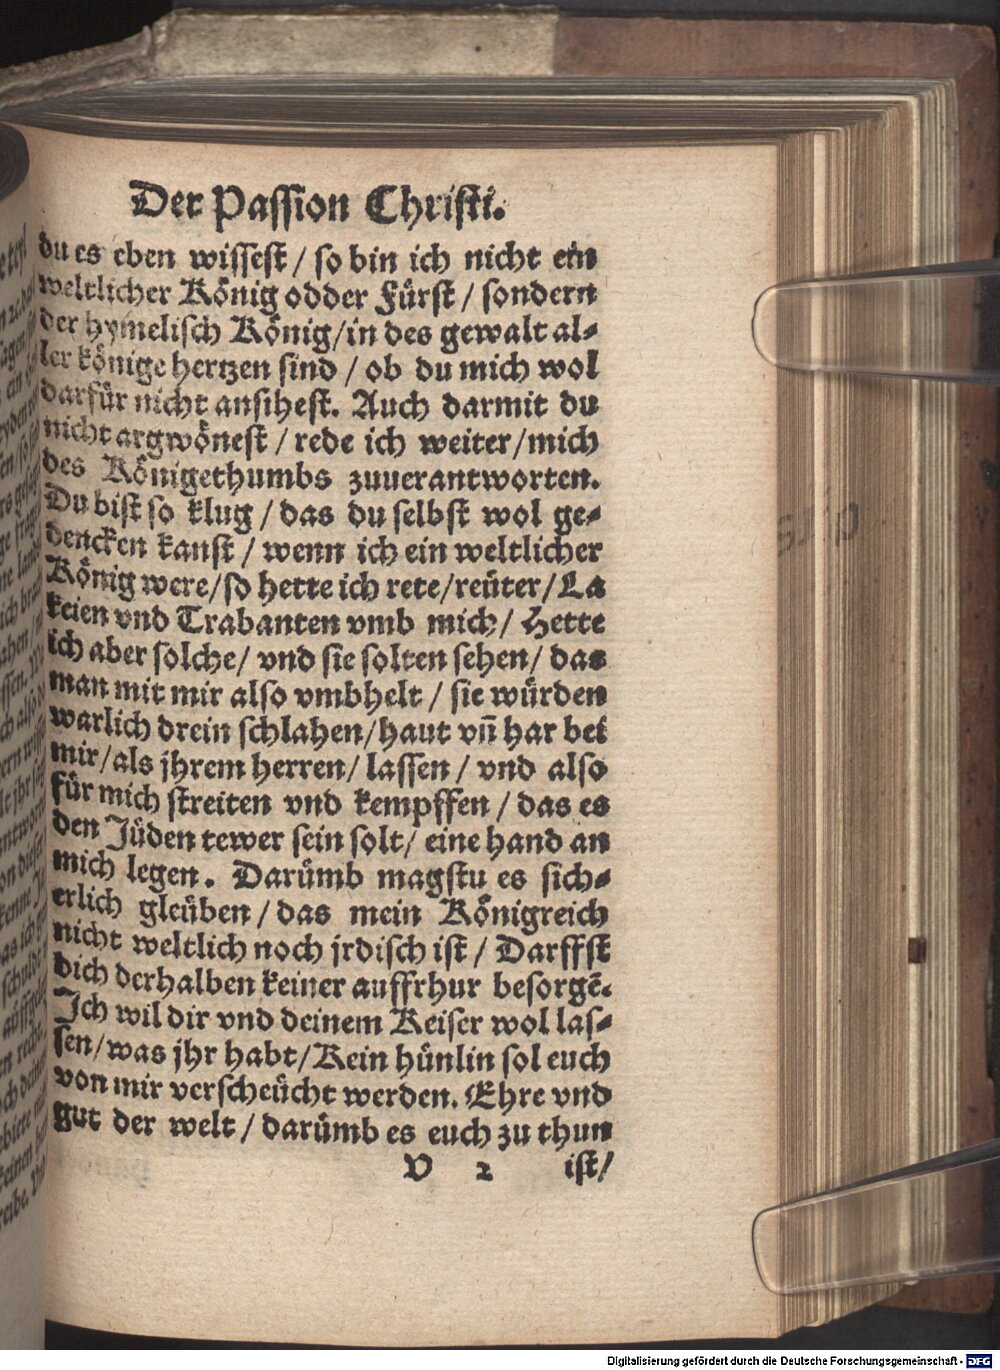 Der Passion Christi.
du es eben wissest / so bin ich nicht ein
weltlicher König odder Fürst / sondern
der hymelisch König/in des gewalt al⸗
ler könige hertzen sind / ob du mich wol
darfür nicht ansihest. Auch darmit du
nicht argwönest / rede ich weiter/mich
des Königethumbs zuuerantworten.
Du bist so klug / das du selbst wol ge⸗
dencken kanst / wenn ich ein weltlicher
König were/so hette ich rete/reüter/La
keien vnd Trabanten vmb mich/ Hette
ich aber solche/ vnd sie solten sehen/ das
man mit mir also vmbhelt / sie würden
warlich drein schlahen/haut vn̄ har bei
mir/als jhrem herren/ lassen / vnd also
für mich streiten vnd kempffen / das es
den Jüden tewer sein solt/ eine hand an
mich legen. Darümb magstu es sich⸗
erlich gleüben / das mein Königreich
nicht weltlich noch jrdisch ist / Darffst
dich derhalben keiner auffrhur besorgē.
Ich wil dir vnd deinem Keiser wol las⸗
sen/was jhr habt/Kein hünlin sol euch
von mir verscheücht werden. Ehre vnd
gut der welt / darümb es euch zu thun
V 2 ist/
Digitalisierung gefördert durch die Deutsche Forschungsgemeinschaft - DFG